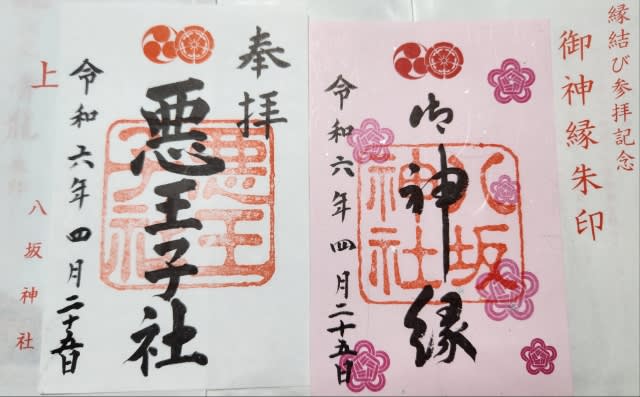 縁結び参拝記念
御神縁朱印
御神縁
八坂神社
令和六年四月二十五日
奉拝
悪王子社
悪王子社
令和六年四月二十五日
上
八坂神社